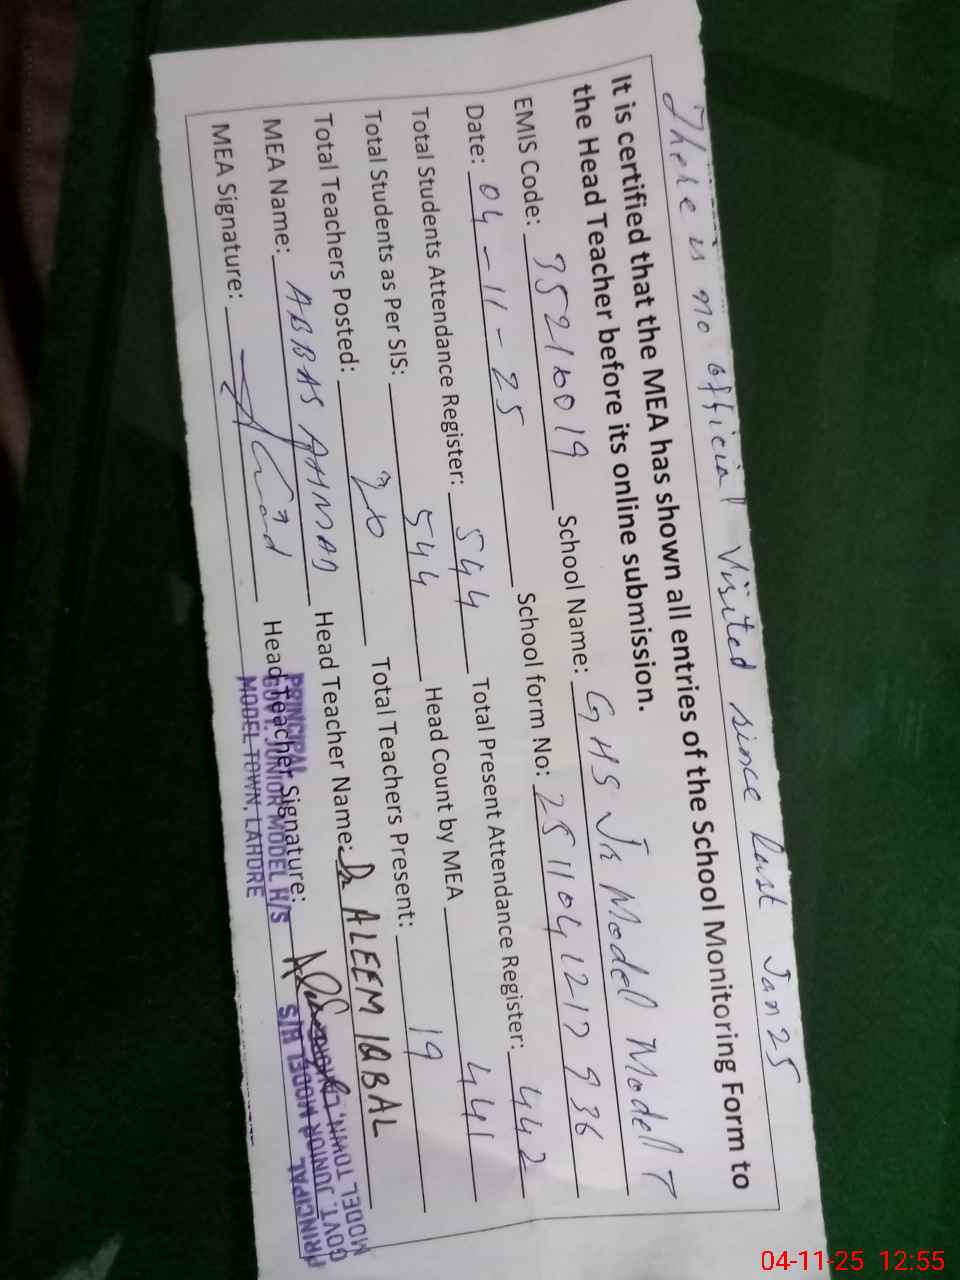 There is no official visited since last Jan 25
It is certified that the MEA has shown all entries of the School Monitoring Form to
the Head Teacher before its online submission.
EMIS Code: 35210019 School Name: GHS Jr Model Model T
Date: 04-11-25 School form No: 2511041217936
Total Students Attendance Register: 544 Total Present Attendance Register: 442
Total Students as Per SIS: 544 Head Count by MEA 441
Total Teachers Posted: 20 Total Teachers Present: 19
MEA Name: ABBAS AHMAD Head Teacher Name: Dr ALEEM IQBAL
MEA Signature: Head Teacher Signature:
PRINCIPAL
GOVT. JUNIOR MODEL H/S
MODEL TOWN, LAHORE
PRINCIPAL
GOVT. JUNIOR MODEL H/S
MODEL TOWN, LAHORE
04-11-25 12:55